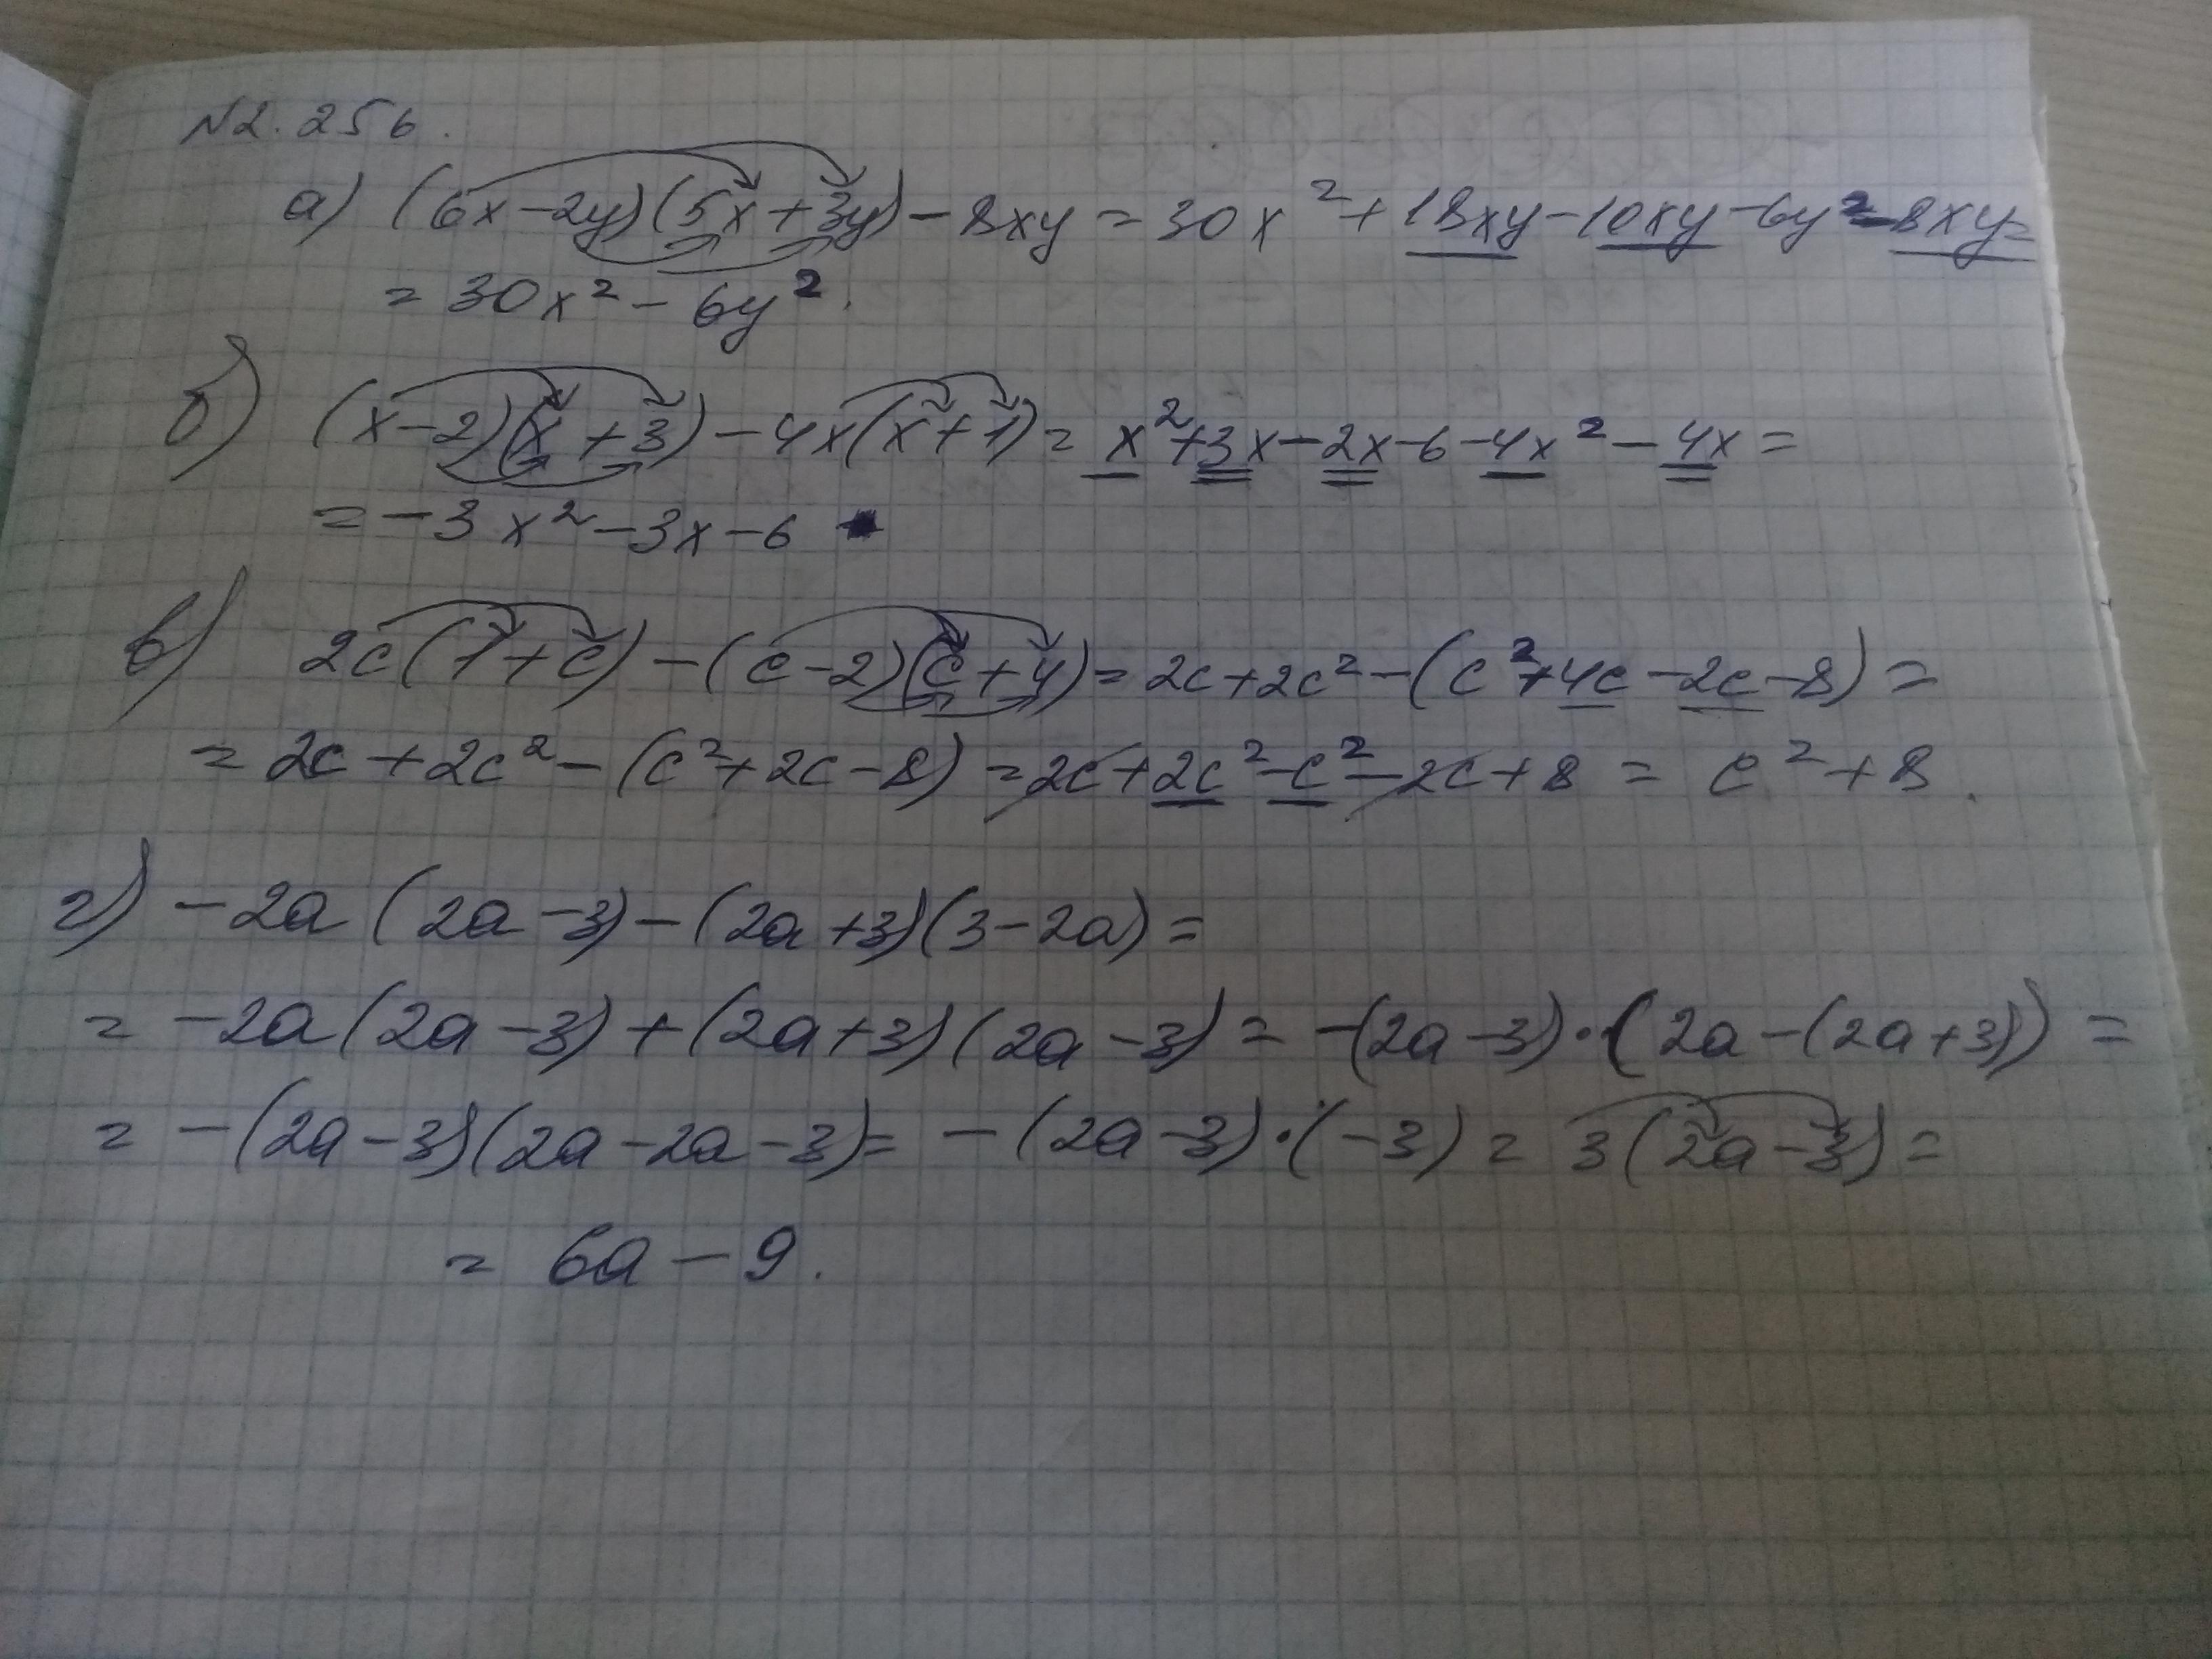 N2.256.
а) (6x-2y)(5x+3y)-8xy=30x²+18xy-10xy-6y²-8xy=
=30x²-6y².
б) (x-2)(x+3)-4x(x+1)=x²+3x-2x-6-4x²-4x=
=-3x²-3x-6
в) 2c(1+c)-(c-2)(c+4)=2c+2c²-(c²+4c-2c-8)=
=2c+2c²-(c²+2c-8)=2c+2c²-c²-2c+8=c²+8.
г) -2a(2a-3)-(2a+3)(3-2a)=
=-2a(2a-3)+(2a+3)(2a-3)=-(2a-3)·(2a-(2a+3))=
=-(2a-3)(2a-2a-3)=-(2a-3)·(-3)=3(2a-3)=
=6a-9.